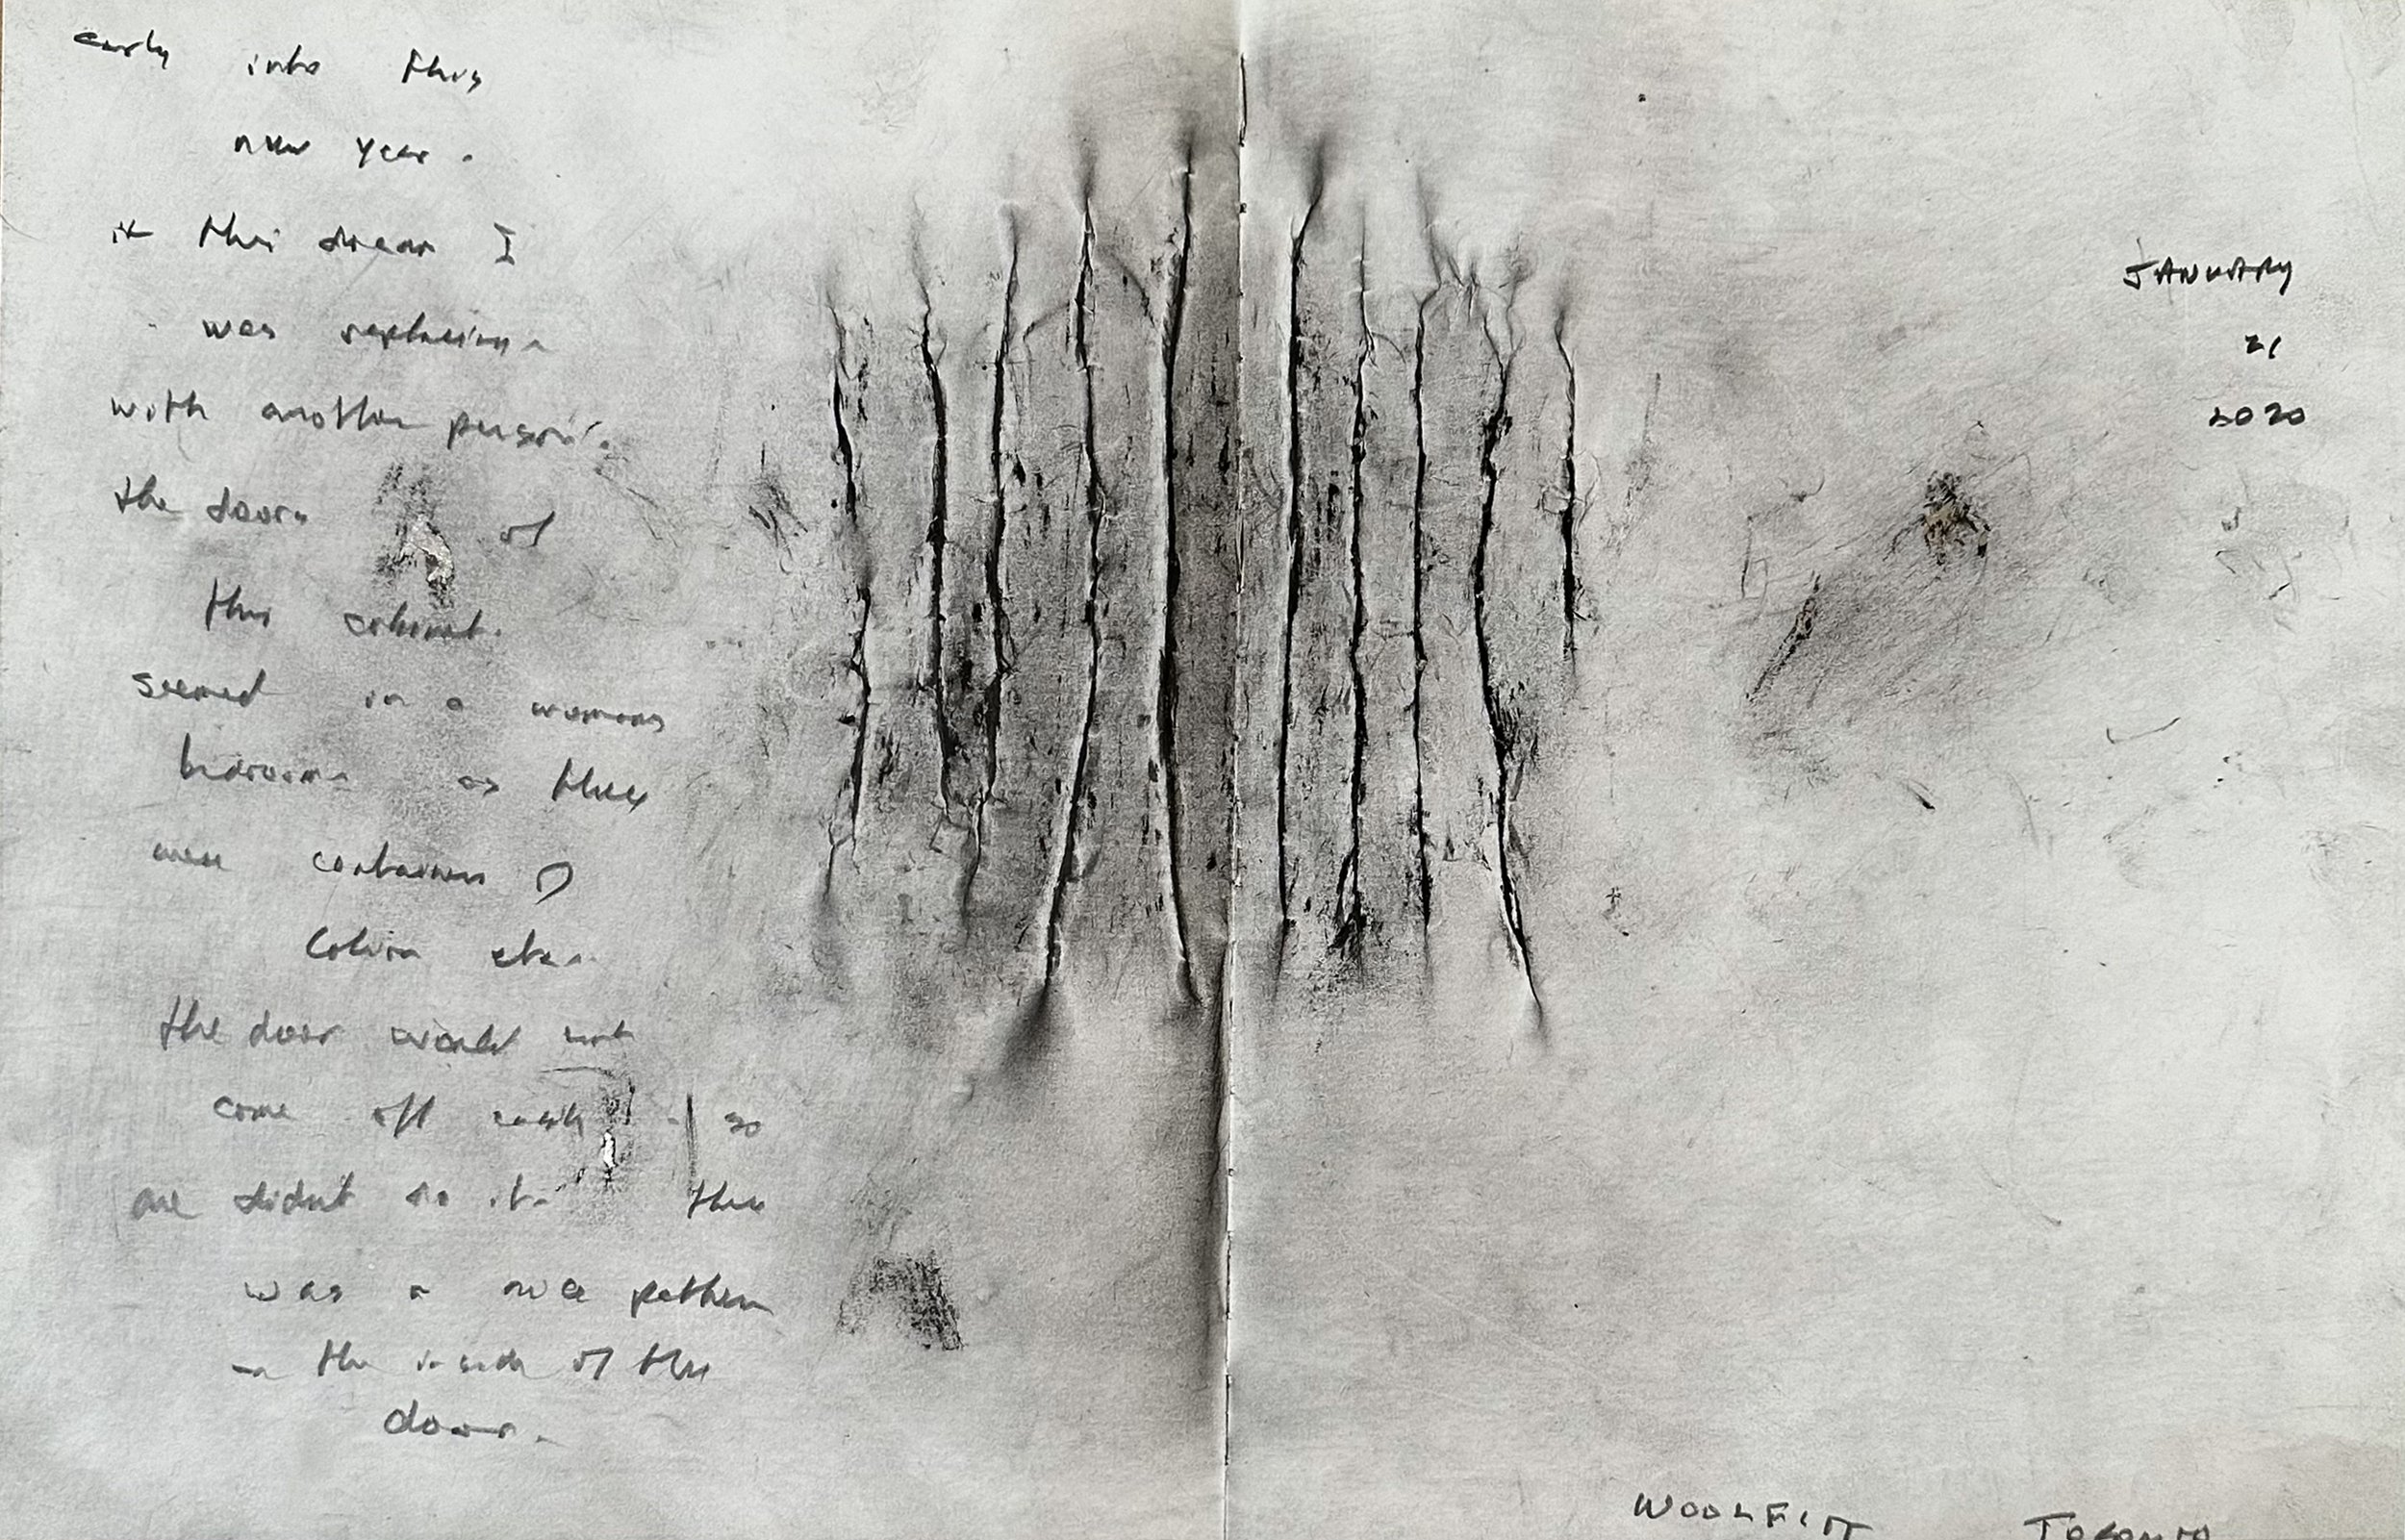 early into this
new year.
in this dream I
was replacing
with another person.
the doors of
this cabinet.
seemed in a womans
bedroom as there
were containers of
lotion etc.
the door would not
come off easily so
we didnt do it. there
was a nice pattern
on the inside of the
door.
JANUARY
21
2020
WOOLFITT TORONTO